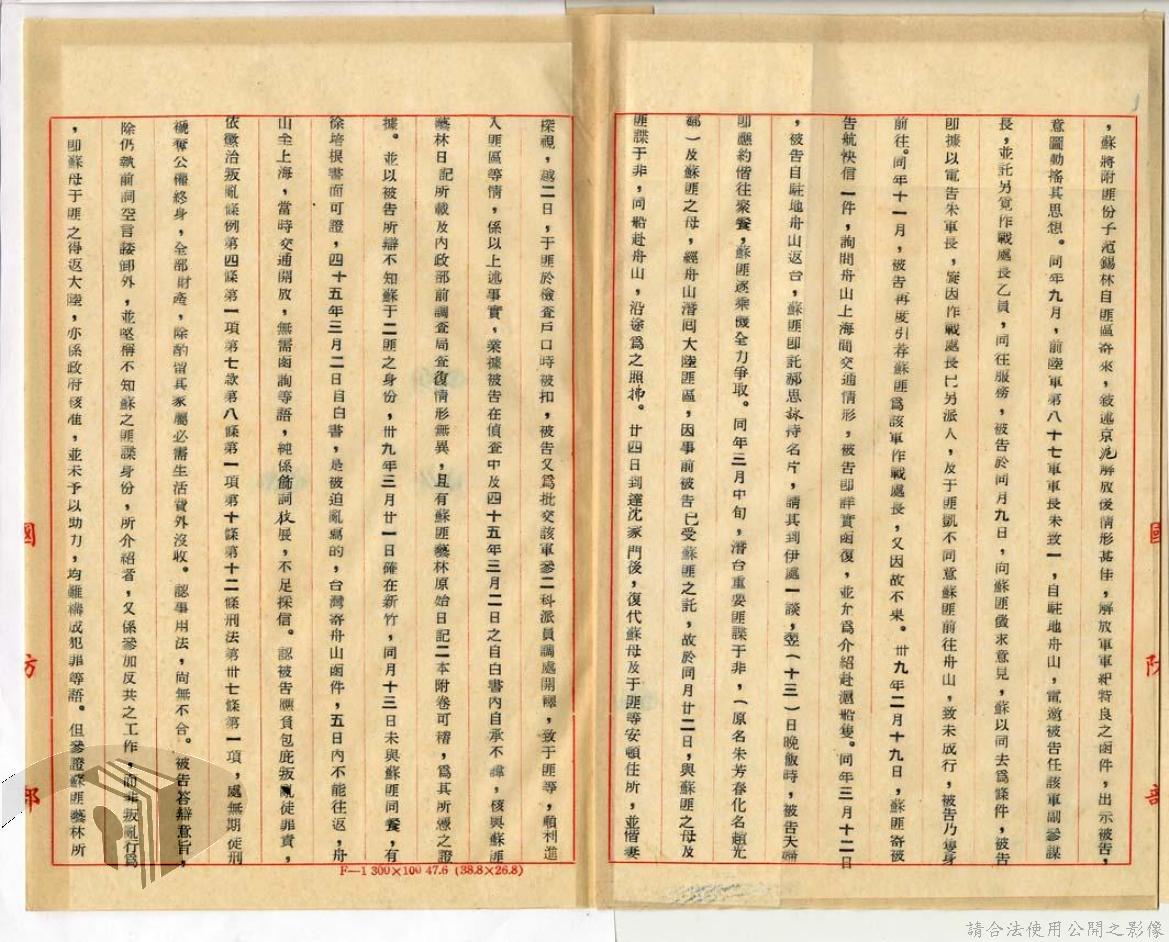 ，蘇將附匪份子范錫林自匪區寄來，敍述京滬解放後情形甚佳，解放軍軍紀特良之函件，出示被告，
意圖動搖其思想。同年九月，前陸軍第八十七軍軍長朱致一，自駐地舟山，電邀被告任該軍副參謀
長，並託另覓作戰處長乙員，同往服務，被告於同月九日，向蘇匪徵求意見，蘇以同去為條件，被告
即據以電告朱軍長，旋因作戰處長已另派人，及于匪凱不同意蘇匪前往舟山，致未成行，被告乃隻身
前往。同年十一月，被告再度引荐蘇匪為該軍作戰處長，又因故不果。卅九年二月十九日，蘇匪寄被
告航快信一件，詢問舟山上海間交通情形，被告即詳實函復，並允為介紹赴滬船隻。同年三月十二日
，被告自駐地舟山返台，蘇匪即託郝思詠持名片，請其到伊處一談，翌（十三）日晚飯時，被告夫婦
即應約偕往聚餐，蘇匪逐乘機全力爭取。同年三月中旬，潛台重要匪諜于非，（原名朱芳春化名趙光
）及蘇匪之母，經舟山潛回大陸匪區，因事前被告已受蘇匪之託，故於同月廿二日，與蘇匪之母及
匪諜于非，同船赴舟山，沿途為之照拂。廿四日到達沈家門後，復代蘇母及于匪等安頓住所，並偕妻
探視，越二日，于匪於檢查戶口時被扣，被告又為批交該軍參二科派員調處開釋，致于匪等，順利進
入匪區等情，係以上述事實，業據被告在偵查中及四十五年三月二日之自白書內自承不諱，核與蘇匪
藝林日記所載及內政部前調查局查復情形無異，且有蘇匪藝林原始日記二本附卷可稽，為其所憑之證
據。並以被告所辯不知蘇于二匪之身份，卅九年三月廿一日確在新竹，同月十三日未與蘇匪同餐，有
徐培根書面可證，四十五年三月二日自白書，是被迫亂寫的，台灣寄舟山函件，五日內不能往返，舟
山至上海，當時交通開放，無需函詢等語，純係飾詞枝展，不足採信。認被告應負包庇叛亂徒罪責，
依懲治叛亂條例第四條第一項第七款第八條第一項第十條第十二條刑法第卅七條第一項，處無期徒刑
褫奪公權終身，全部財產，除酌留其家屬必需生活費外沒收。認事用法，尚無不合。被告答辯意旨，
除仍執前詞空言諉卸外，並堅稱不知蘇之匪諜身份，所介紹者，又係參加反共之工作，而非叛亂行為
，即蘇母于匪之得返大陸，亦係政府核准，並未予以助力，均難構成犯罪等語。但參證蘇匪藝林所
國防部
國防部
F—1 300×100 47.6 (38.8×26.8)
請合法使用公開之影像